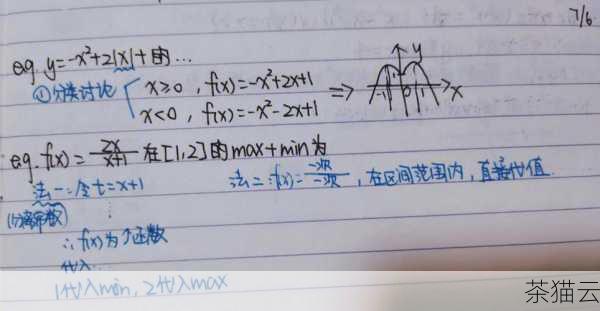 7/6
eg. y=-x²+2|x|+1的...
①分类讨论 { x≥0, f(x)=-x²+2x+1 ⇒ y x
x<0, f(x)=-x²-2x+1
eg. f(x)=2x/(x+1) 在[1,2]的max+min为
法一:令t=x+1 法二:f(x)=一次/一次,在区间范围内,直接代值
(分离常数)
∴f(x)为增函数
代入
1代入min,2代入max
茶猫云